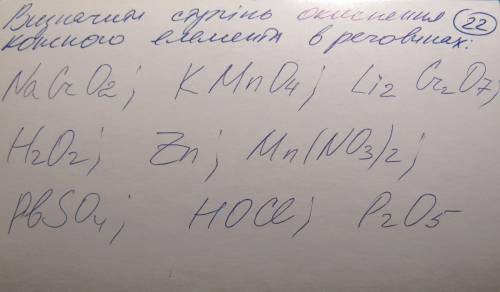 Визначити ступінь окиснення 22
кожного елемента в речовинах:
NaCrO2; KMnO4; Li2Cr2O7;
H2O2; Zn; Mn(NO3)2;
PbSO4; HOCl; P2O5